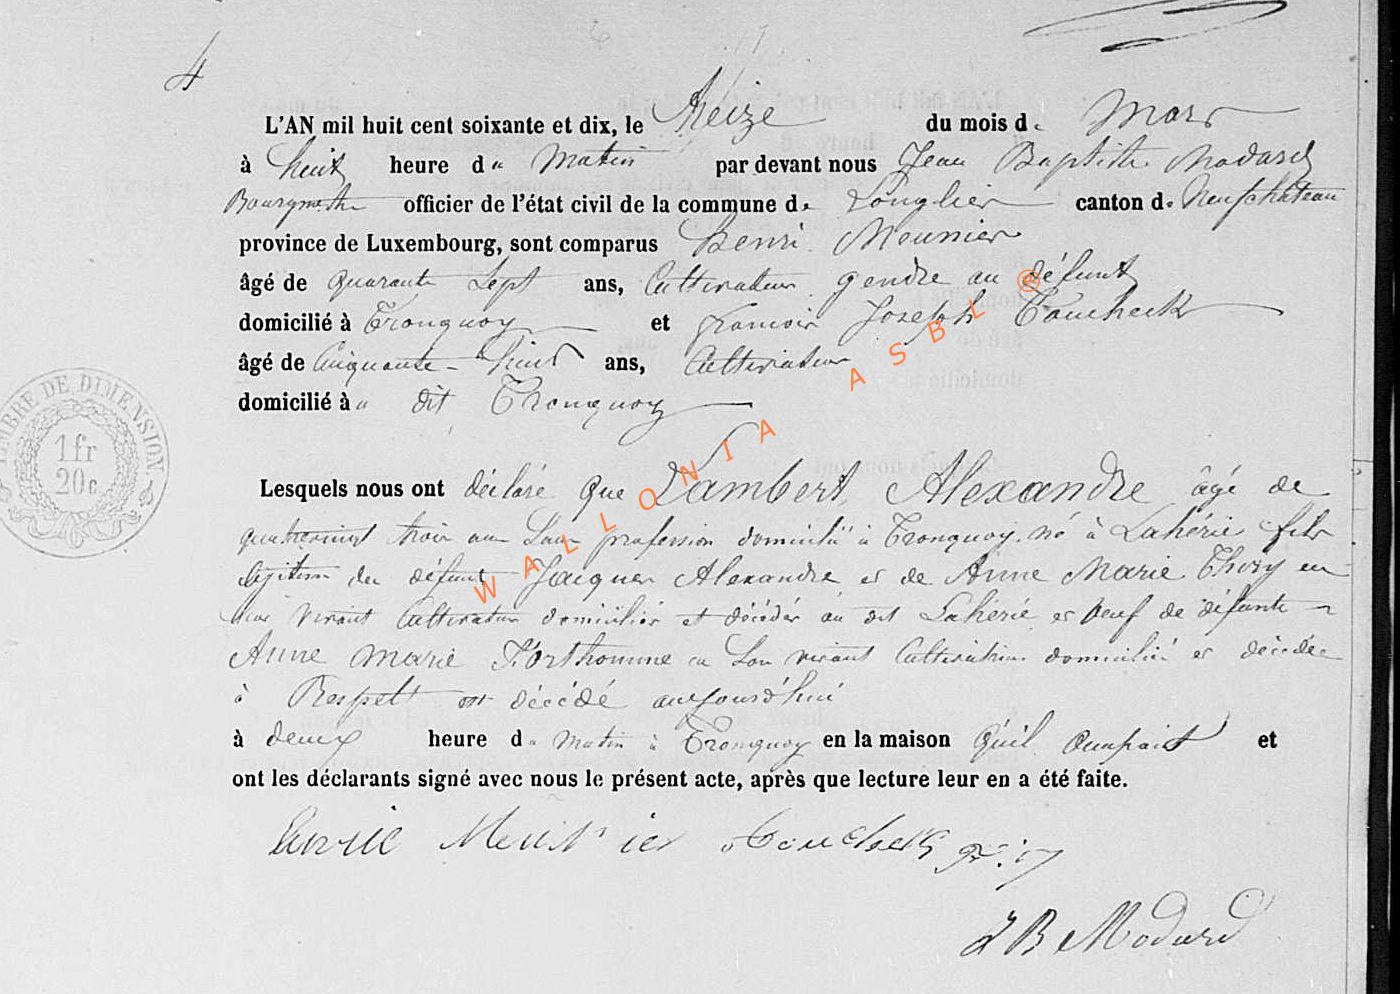 4
L'AN mil huit cent soixante et dix, le Treize du mois de Mars
à huit heure du Matin par devant nous Jean Baptiste Modard
Bourgmestre officier de l'état civil de la commune de Longlier canton de Neufchateau
province de Luxembourg, sont comparus henri Meunier
âgé de quarante Sept ans, Cultivateur gendre au défunt
domicilié à Tronquoy et francois Joseph Toucheck
âgé de Cinquante-huit ans, Cultivateur
domicilié à dit Tronquoy
TIMBRE DE DIMENSION.
1 fr
20 c
Lesquels nous ont déclaré que Lambert Alexandre âgé de
quatrevingt trois ans Sans profession domicilié à Tronquoy né à Lahérie fils
légitime des défunt Jacques Alexandre et de Anne Marie Thiry en
leur vivant Cultivateur domiciliés et décédés au dit Lahérie et veuf de défunte
Anne Marie D'orthomme en Son vivant Cultivatrice domiciliée et décédée
à Respelt est décédé aujourd'hui
à deux heure du Matin à Tronquoy en la maison qu'il occupait et
ont les déclarants signé avec nous le présent acte, après que lecture leur en a été faite.
Meunier
J B Modard
WALLONIA ASBL ®